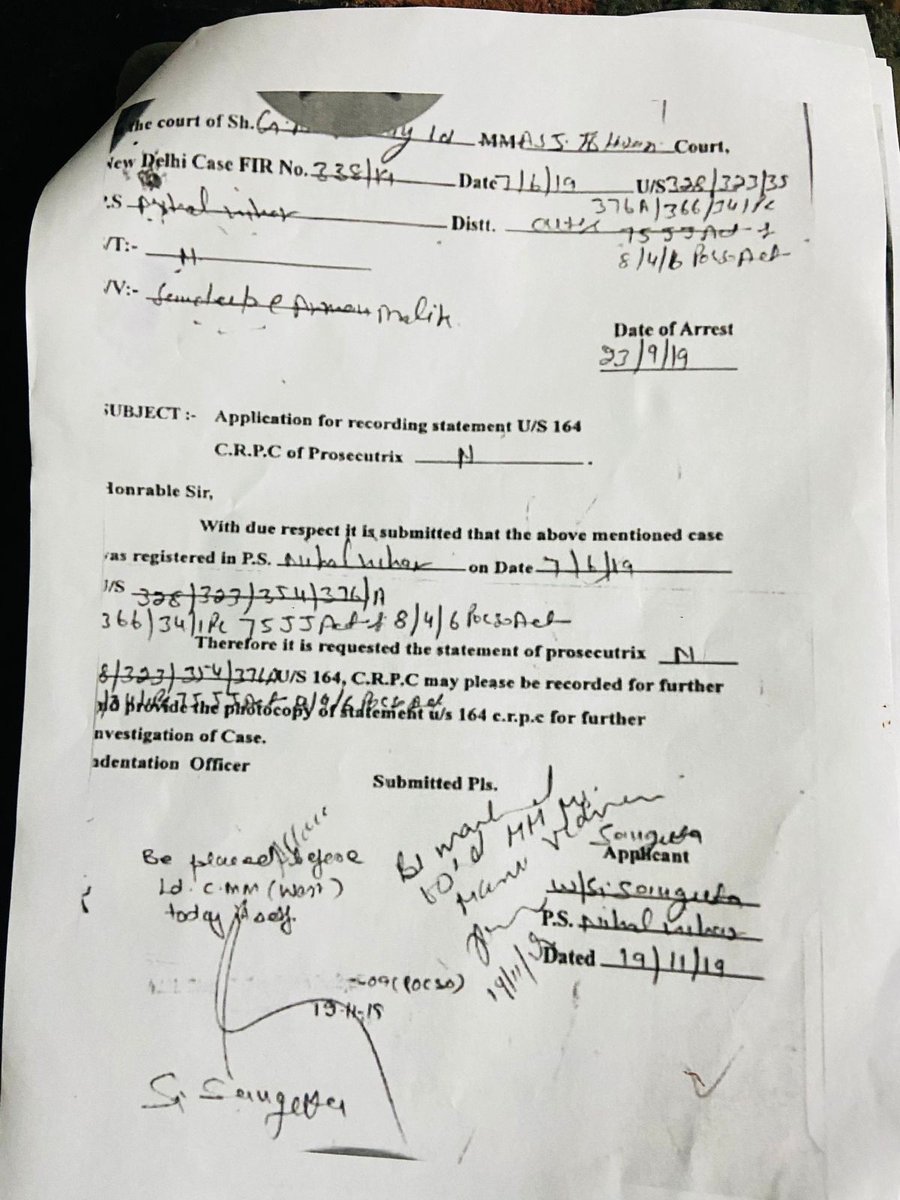 the court of Sh. Ld MM ASJ Court,
New Delhi Case FIR No. 338/19 Date 7/6/19 U/S 328/323/35
376A/366/34 IPC
P.S Distt. outer 75 JJ Act &
8/4/6 Pocso Act
/VT:- N
/V:- Malik
Date of Arrest
23/9/19
SUBJECT :- Application for recording statement U/S 164
C.R.P.C of Prosecutrix N .
Honrable Sir,
With due respect it is submitted that the above mentioned case
was registered in P.S. Nihal Vihar on Date 7/6/19
U/S 328/323/354/376/A
366/34/IPC 75 JJ Act & 8/4/6 Pocso Act
Therefore it is requested the statement of prosecutrix N
8/323/354/376A U/S 164, C.R.P.C may please be recorded for further
nd provide the photocopy of statement u/s 164 c.r.p.c for further
nvestigation of Case.
ndentation Officer
Submitted Pls.
Be placed before
Ld. C.MM (West)
today itself.
Be marked
to Ld MM Ms.
19/11/19
Sangeeta
Applicant
W/SI Sangeeta
P.S. Nihal Vihar
Dated 19/11/19
-09 (POCSO)
SI Sangeeta